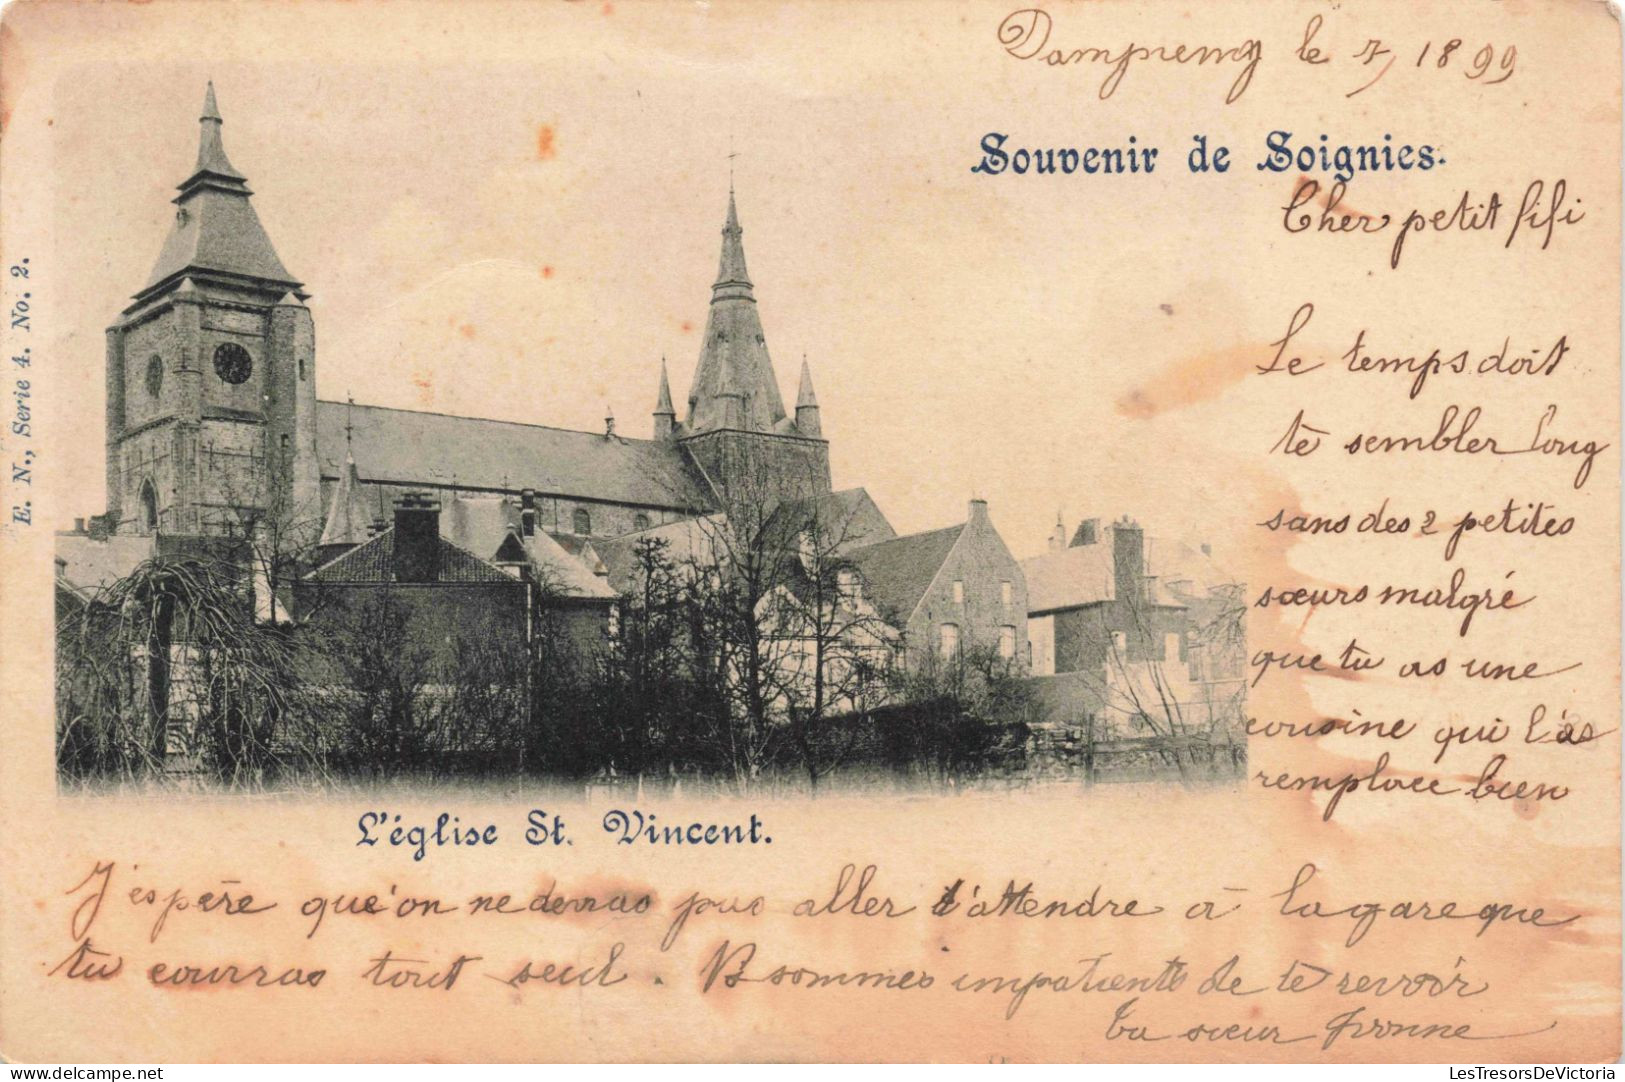 Dampremy le 7, 1899
Souvenir de Soignies.
Cher petit fifi
Le temps doit
tè sembler long
sans des 2 petites
sœurs malgré
que tu as une
cousine qui l'as
remplace bien
E. N., Serie 4. No. 2.
L'église St. Vincent.
J'espère que'on ne devras pas aller t'attendre à la gare que
tu courras tout seul. N sommes impatients de tè revoir
Ta sœur Yvonne
LesTresorsDeVictoria
delcampe.net
LesTresorsDeVictoria